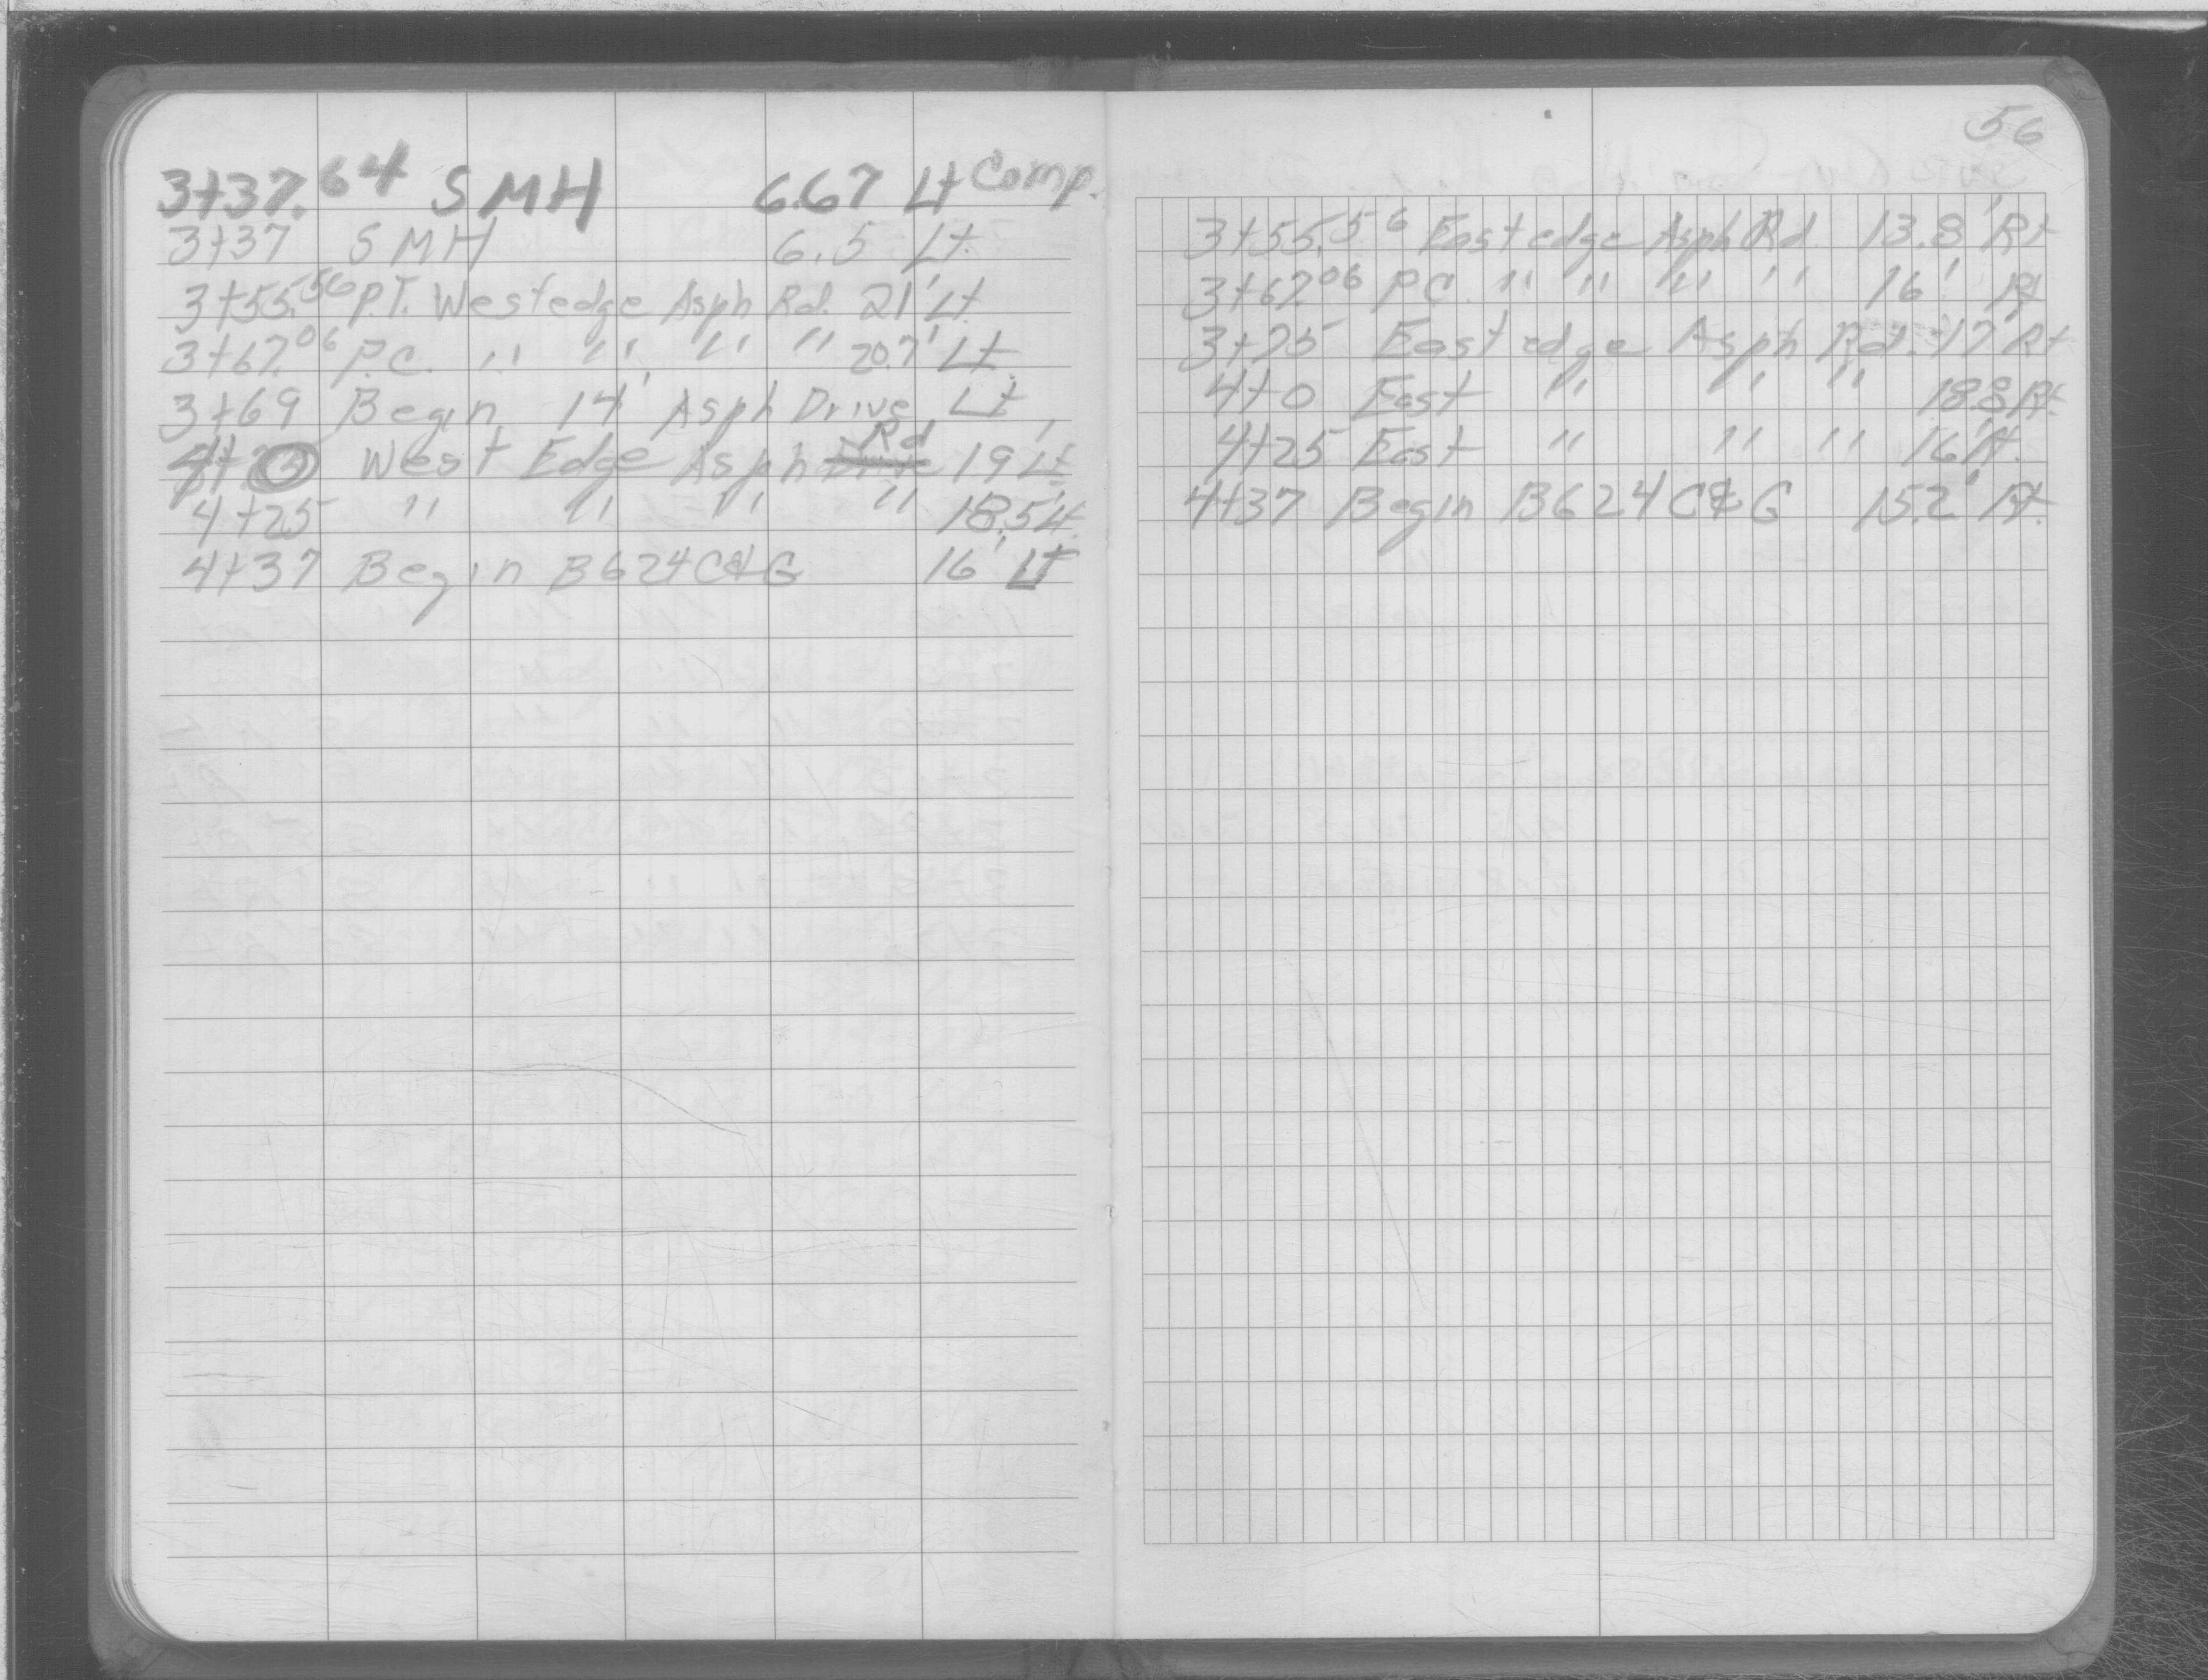 3+37.64 SMH 6.67 Lt Comp.
3+37 SMH 6.5 Lt.
3+55.56 P.T. West edge Asph Rd. 21' Lt
3+67.06 P.C. " " " " 20.7' Lt.
3+69 Begin 14' Asph Drive Lt.
4+0 West Edge Asph Rd 19' Lt
4+25 " " " " 18.5' Lt.
4+37 Begin B624 C&G 16' Lt
56
3+55.56 East edge Asph Rd. 13.8' Rt
3+67.06 P.C. " " " " 16' Rt
3+75 East edge Asph Rd. 17' Rt
4+0 East " " " 18.8' Rt.
4+25 East " " " 16' Rt.
4+37 Begin B624 C&G 15.2' Rt.